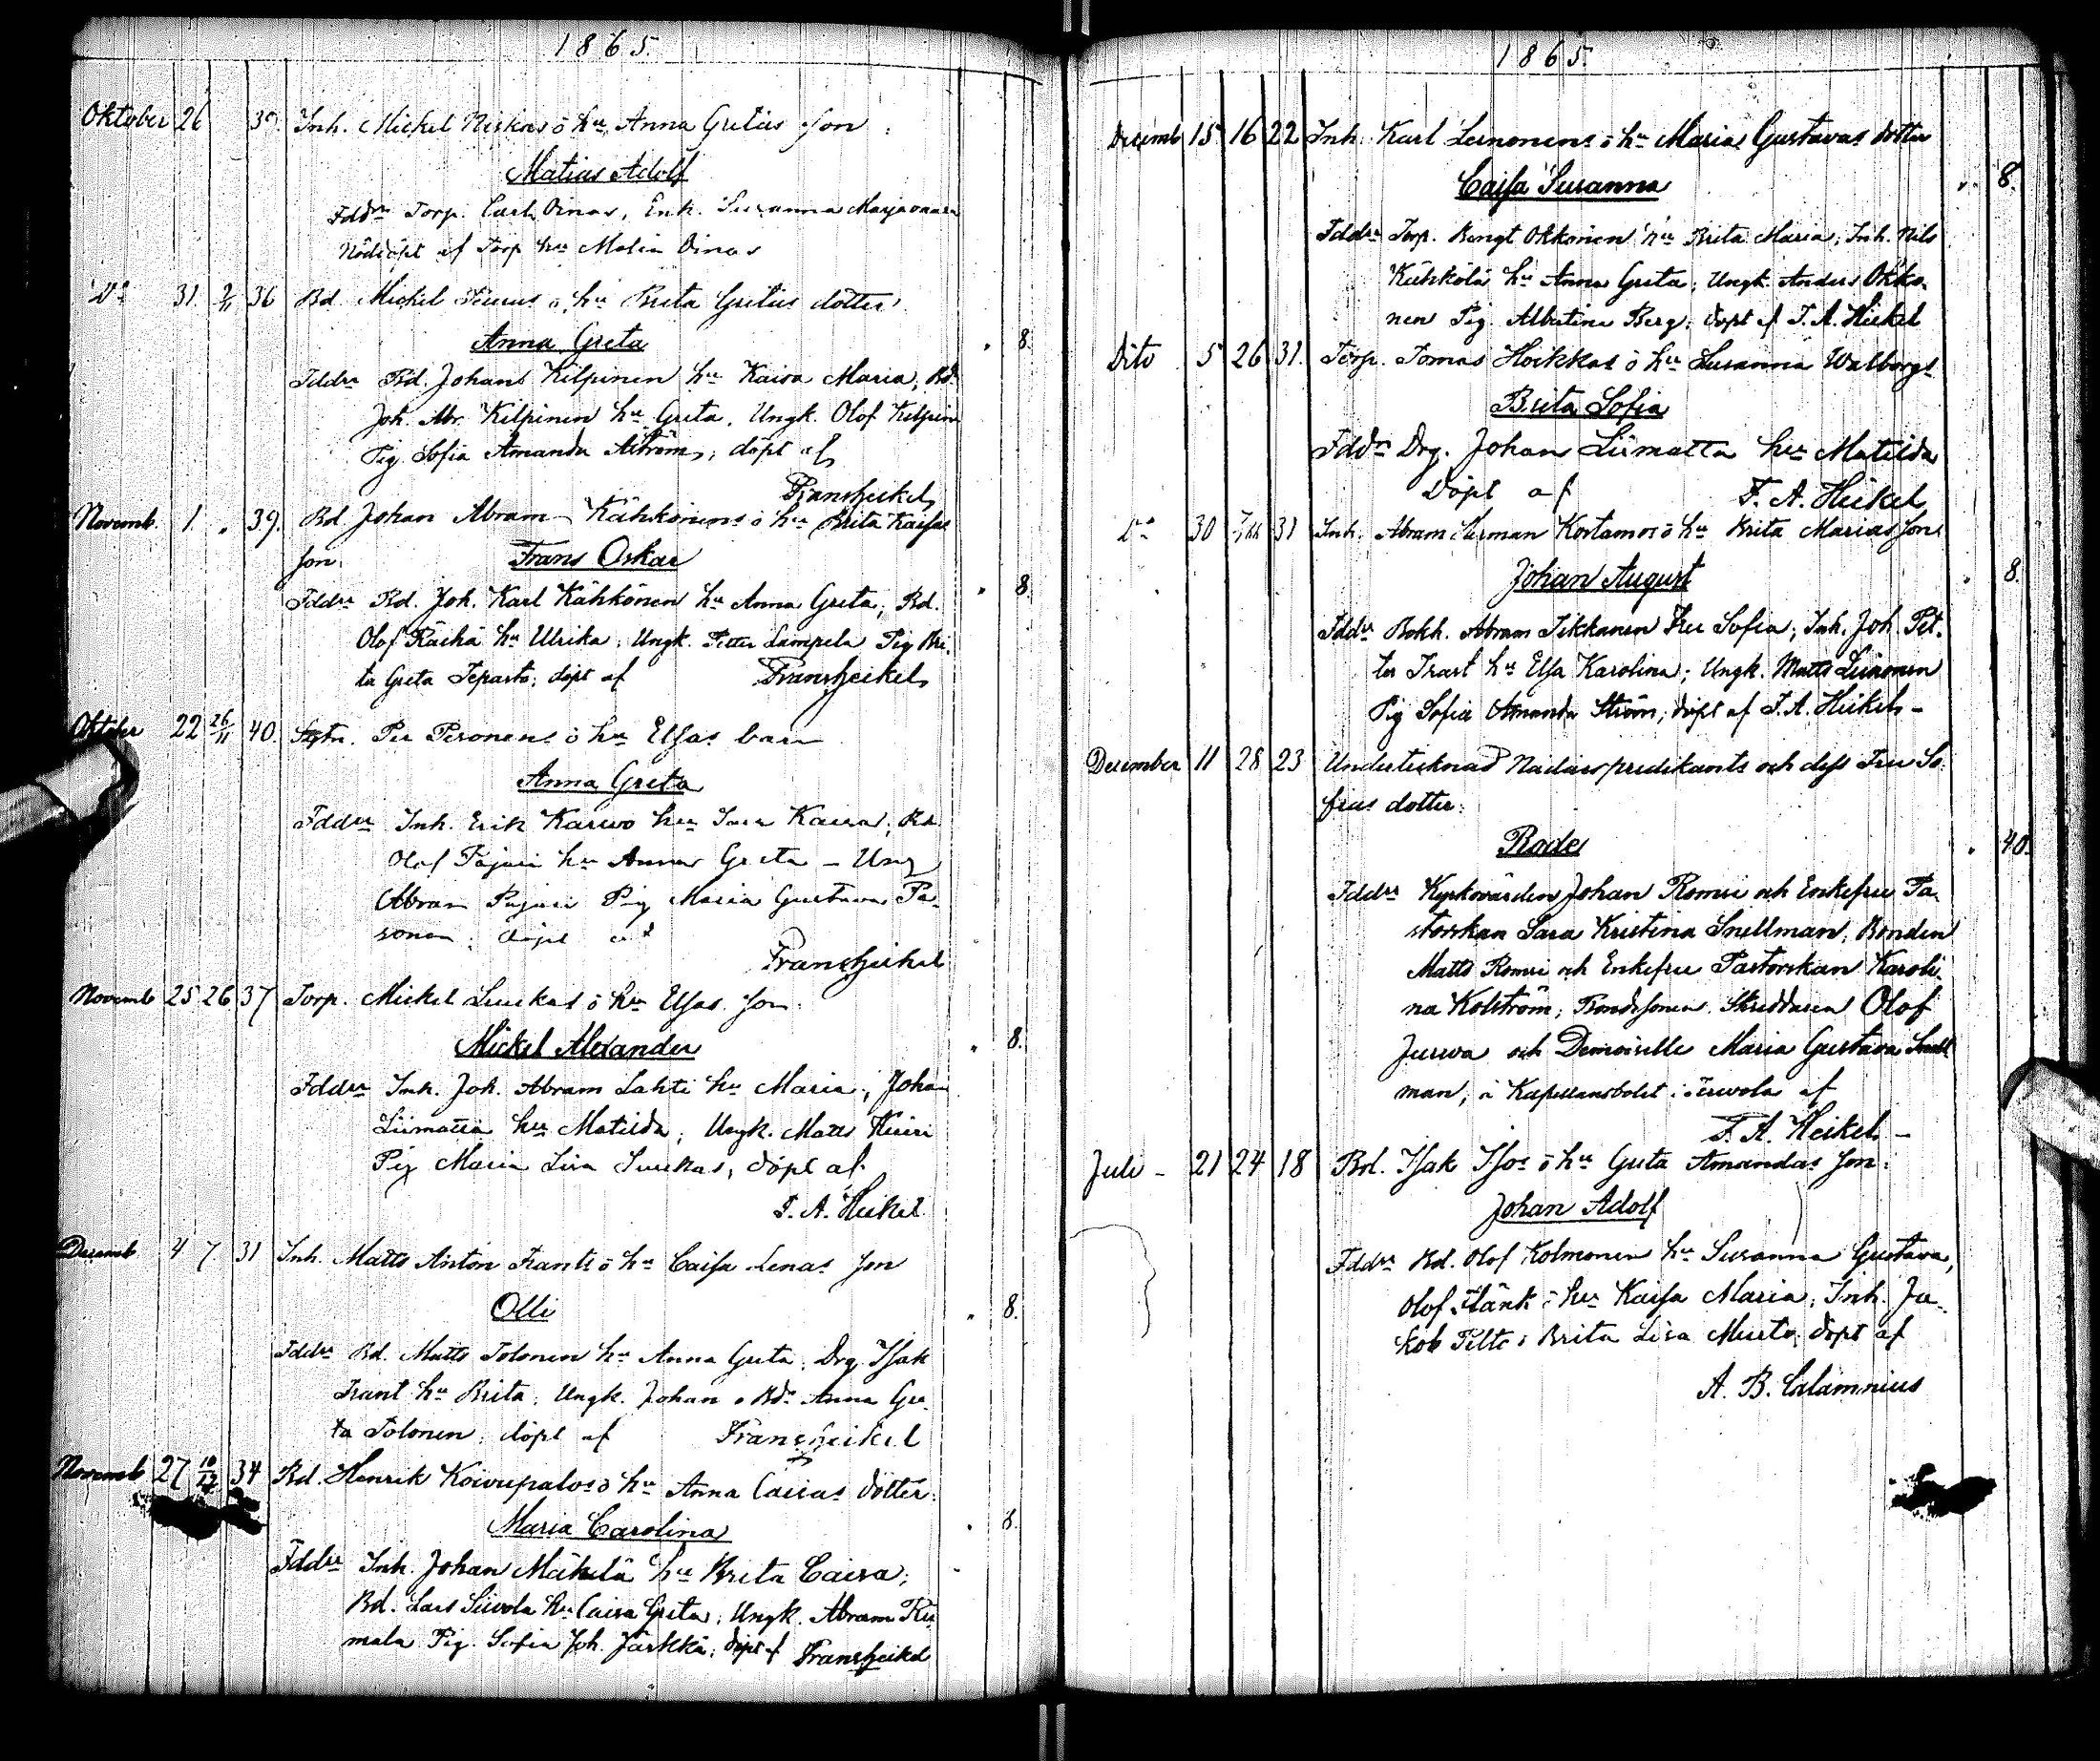 1865.
Oktober 26 39. Inh. Mickel Niskas o hu Anna Gretas Son:
Matias Adolf
Fddr Torp. Carl Oinas, Enk. Susanna Marjavaara
Nöddöpt af Torp hu Malin Oinas
Do 31. 2/11 36 Bd. Mickel o hu Brita Gretas dotter
Anna Greta
8.
Fddr Bd. Johans Kilpinen hu Kaisa Maria, Bd.
Joh. Abr. Kilpinen hu Greta, Ungk. Olof Kilpin
Pig Sofia Amanda Åström, döpt af
Frans Heikel
Novemb. 1. „ 39. Bd Johan Abram Kähkönens o hu Brita Kaisas
Son. Frans Oskar
8
Fddr Bd. Joh. Karl Kähkönen hu Anna Greta, Bd.
Olof Räihä hu Ulrika, Ungk. Petter Lampela Pig Bri-
ta Greta Teparto; döpt af Frans Heikel
Oktober 22 26/11 40. Per Peronens o hu Elsas barn
Anna Greta
Fddr Inh. Erik Karvo hu Sara Kaisa, Bd.
Olof Pajari hu Anna Greta – Ung
Abram Pajari Pig Maria Gustava Pa-
sonen; döpt af
Frans Heikel
Novemb 25 26 37 Torp. Mickel Luukas o hu Elsas Son.
Mickel Alexander
8.
Fddr Inh. Joh. Abram Lahti hu Maria, Johan
Liimatta hu Matilda, Ungk. Matts
Pig Maria Lisa Luukas, döpt af
F. A. Heikel
Decemb 4 7 31 Inh. Matts Anton Trants o hu Caisa Lenas Son
Olli
8.
Fddr Bd. Matts Tolonen hu Anna Greta, Drg Isak
Trant hu Brita, Ungk. Johan o Bdr Anna Gre-
ta Tolonen, döpt af Frans Heikel
Novemb 27 10/12 34 Bd. Henrik Koivupalos o hu Anna Caisas dotter.
Maria Carolina
8.
Fddr Inh. Johan Mäkelä hu Brita Caisa,
Bd. Lars Siivola hu Caisa Greta, Ungk. Abram
mala Pig. Sofia Joh. Järkkä, döpt af Frans Heikel
1865.
Decemb 15 16 22 Inh. Karl Leinonens o hu Marias Gustavas dotter
Caisa Susanna
8.
Fddr Torp. Bengt Okkonen hu Brita Maria, Inh. Nils
Kähkölä hu Anna Greta, Ungk. Anders Okko-
nen Pig. Albertina Berg, döpt af F. A. Heikel
Dito 5 26 31. Torp. Tomas Hoikkas o hu Susanna Walborgs
Brita Sofia
Fddr Drg. Johan Liimatta hu Matilda
Döpt af F. A. Heikel
Do 30 31 Inh. Abram Herman Kortamos o hu Brita Marias Son
Johan August
8.
Fddr Bokh. Abram Tikkanen hu Sofia, Inh. Joh. Pet-
ter Trast hu Elsa Karolina, Ungk. Matts Leinonen
Pig Sofia Amanda Ström, döpt af F. A. Heikel –
December 11 28 23 Undertecknad Nådårspredikants och dess Fru So-
fias dotter.
Rode
40.
Fddr Kyrkovärden Johan Romsi och Enkefru Pa-
storskan Sara Kristina Snellman, Bonden
Matts Romsi och Enkefru Pastorskan Karoli-
na Kolström, Bondesonen Skräddaren Olof
Juswa och Demoiselle Maria Gustava Snell
man, å Kapellansbolet i Terwola af
F. A. Heikel –
Juli – 21 24 18 Bd. Isak Isos o hu Greta Amandas Son.
Johan Adolf
Fddr Bd. Olof Kolmonen hu Susanna Gustava,
Olof o hu Kaisa Maria, Inh. Ja-
kob Pelto o Brita Lisa Murto, döpt af
A. B. Calamnius